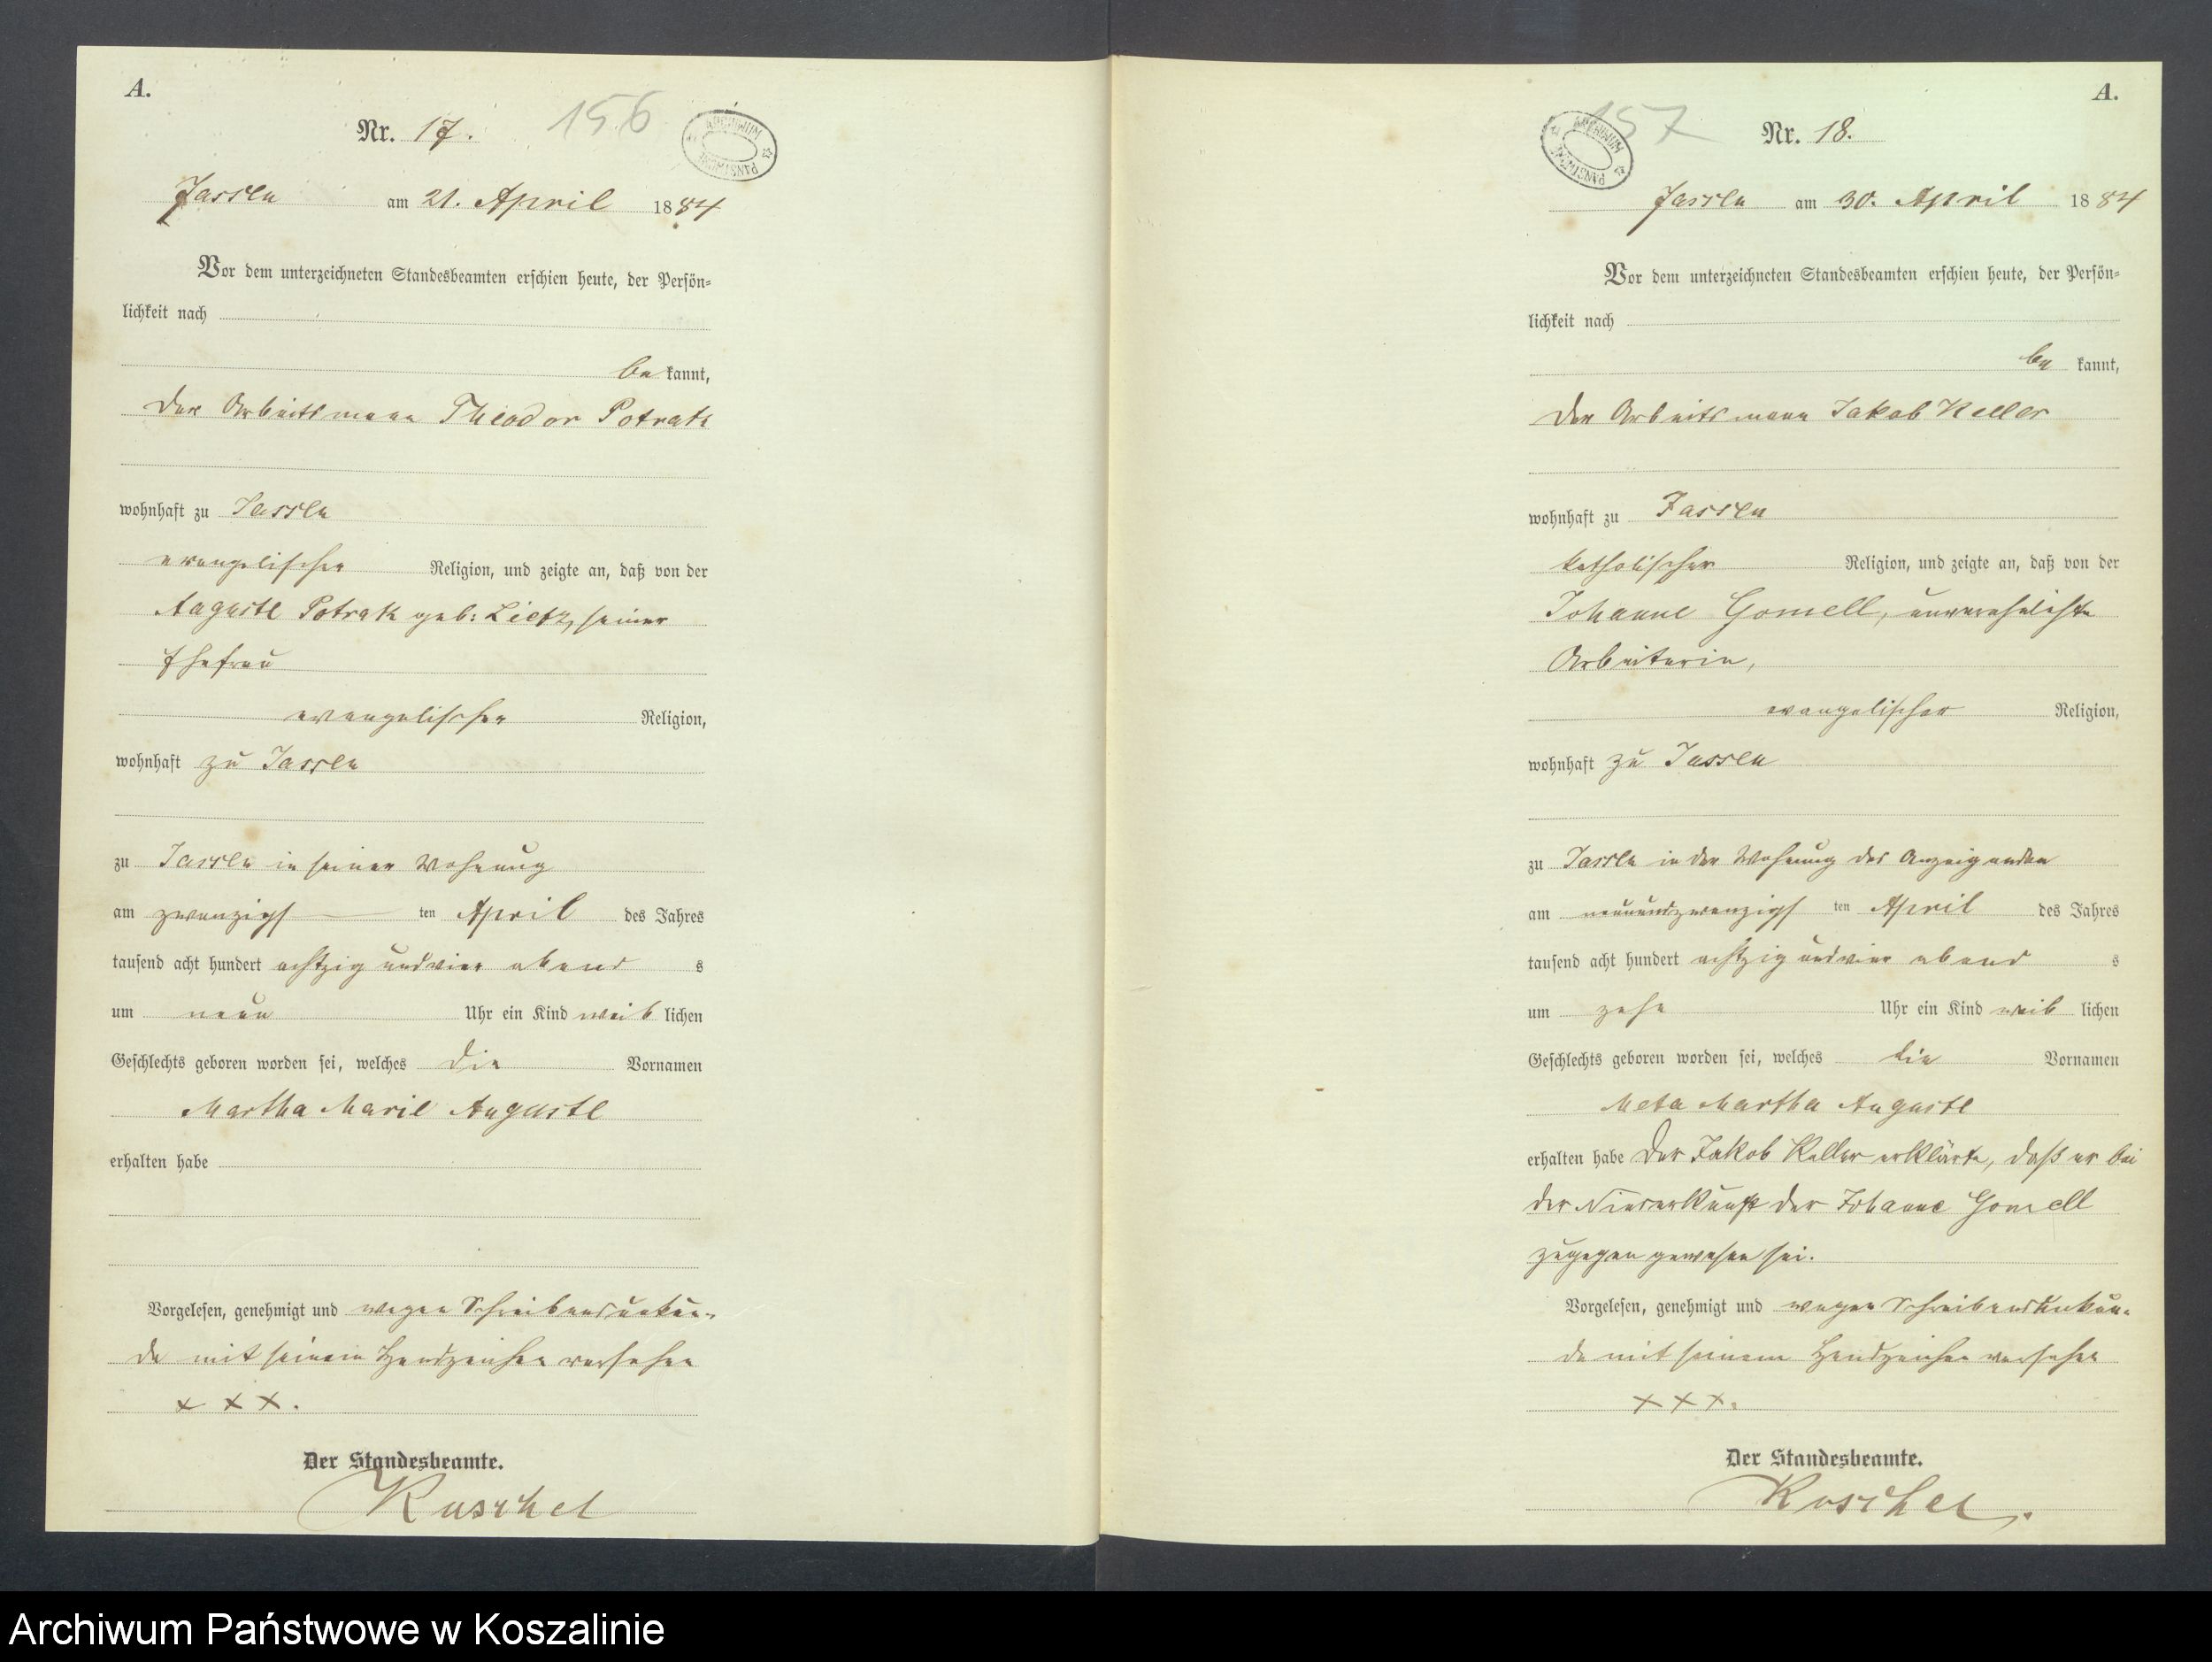 A.
Nr. 17.
156
ARCHIWUM PAŃSTWOWE
Jassen am 21. April 1884
Vor dem unterzeichneten Standesbeamten erschien heute, der Persön-
lichkeit nach
be kannt,
der Arbeitsmann Theodor Potratz
wohnhaft zu Jassen
evangelischer Religion, und zeigte an, daß von der
Auguste Potratz geb: Lietz, seiner
Ehefrau
evangelischer Religion,
wohnhaft zu Jassen
zu Jassen in seiner Wohnung
am zwanzigs ten April des Jahres
tausend acht hundert achtzig und vier abend s
um neun Uhr ein Kind weib lichen
Geschlechts geboren worden sei, welches die Vornamen
Martha Marie Auguste
erhalten habe
Vorgelesen, genehmigt und wegen Schreibensunkun-
de mit seinem Handzeichen versehen
x x x.
Der Standesbeamte.
Kuschel
A.
157
Nr. 18.
ARCHIWUM PAŃSTWOWE
Jassen am 30. April 1884
Vor dem unterzeichneten Standesbeamten erschien heute, der Persön-
lichkeit nach
be kannt,
der Arbeitsmann Jakob Keller
wohnhaft zu Jassen
katholischer Religion, und zeigte an, daß von der
Johanne Gomell, unverehelichte
Arbeiterin,
evangelischer Religion,
wohnhaft zu Jassen
zu Jassen in der Wohnung des Anzeigenden
am neunundzwanzigs ten April des Jahres
tausend acht hundert achtzig und vier abend s
um zehn Uhr ein Kind weib lichen
Geschlechts geboren worden sei, welches die Vornamen
Meta Martha Auguste
erhalten habe Der Jakob Keller erklärte, daß er bei
der Niederkunft der Johanne Gomell
zugegen gewesen sei.
Vorgelesen, genehmigt und wegen Schreibensunkun-
de mit seinem Handzeichen versehen
x x x.
Der Standesbeamte.
Kuschel.
Archiwum Państwowe w Koszalinie